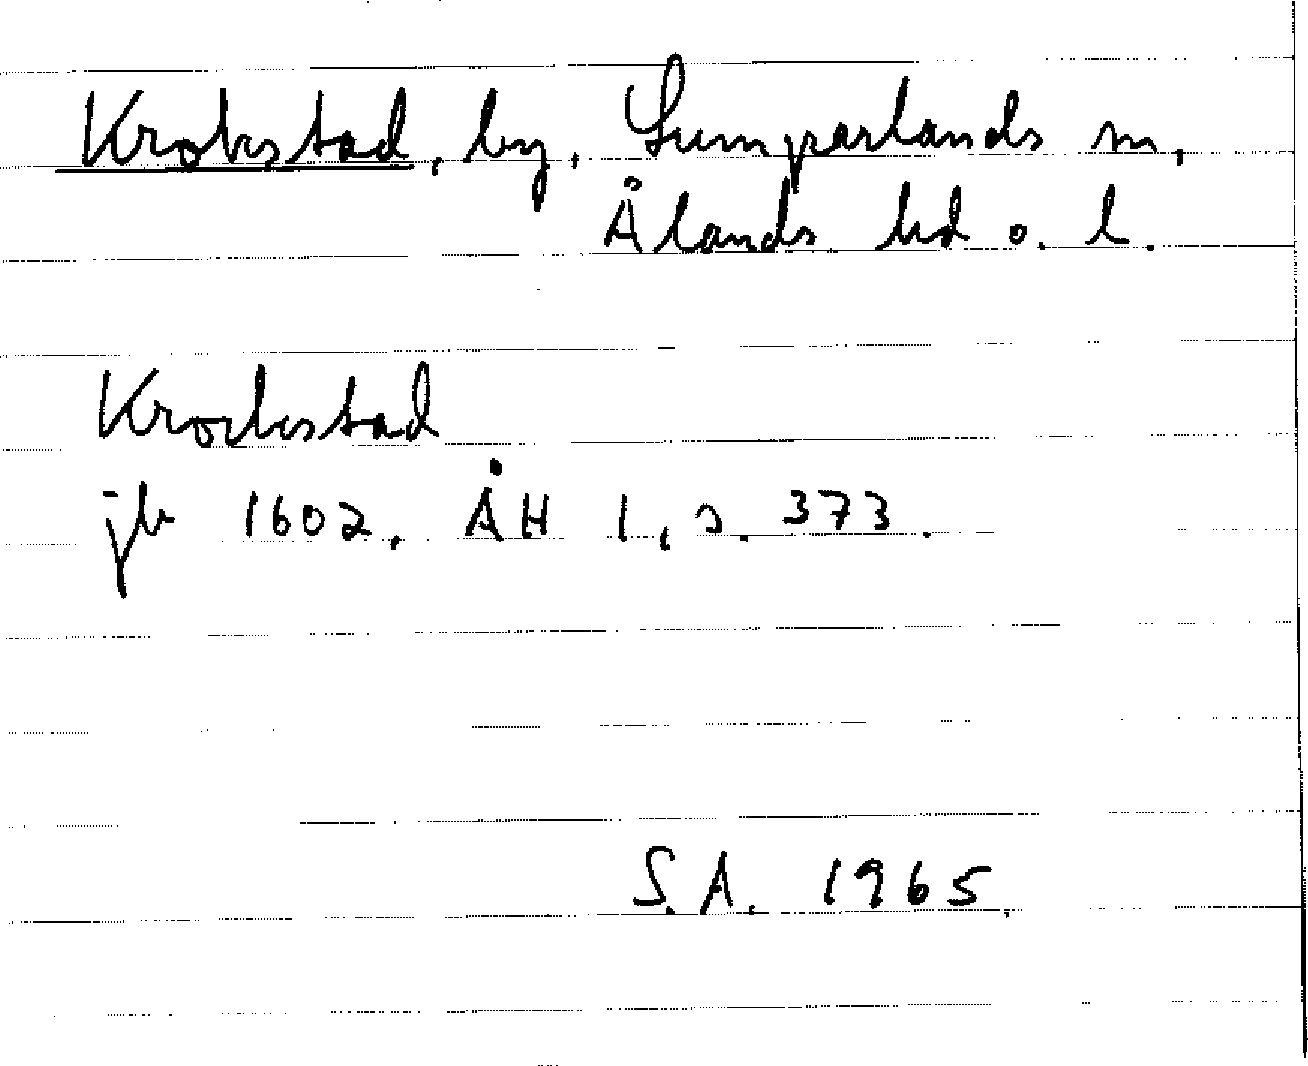 Krokstad, by, Lumparlands sn,
Ålands hd o. l.
Krockstad
jb 1602. ÅH 1, s. 373.
S.A. 1965.